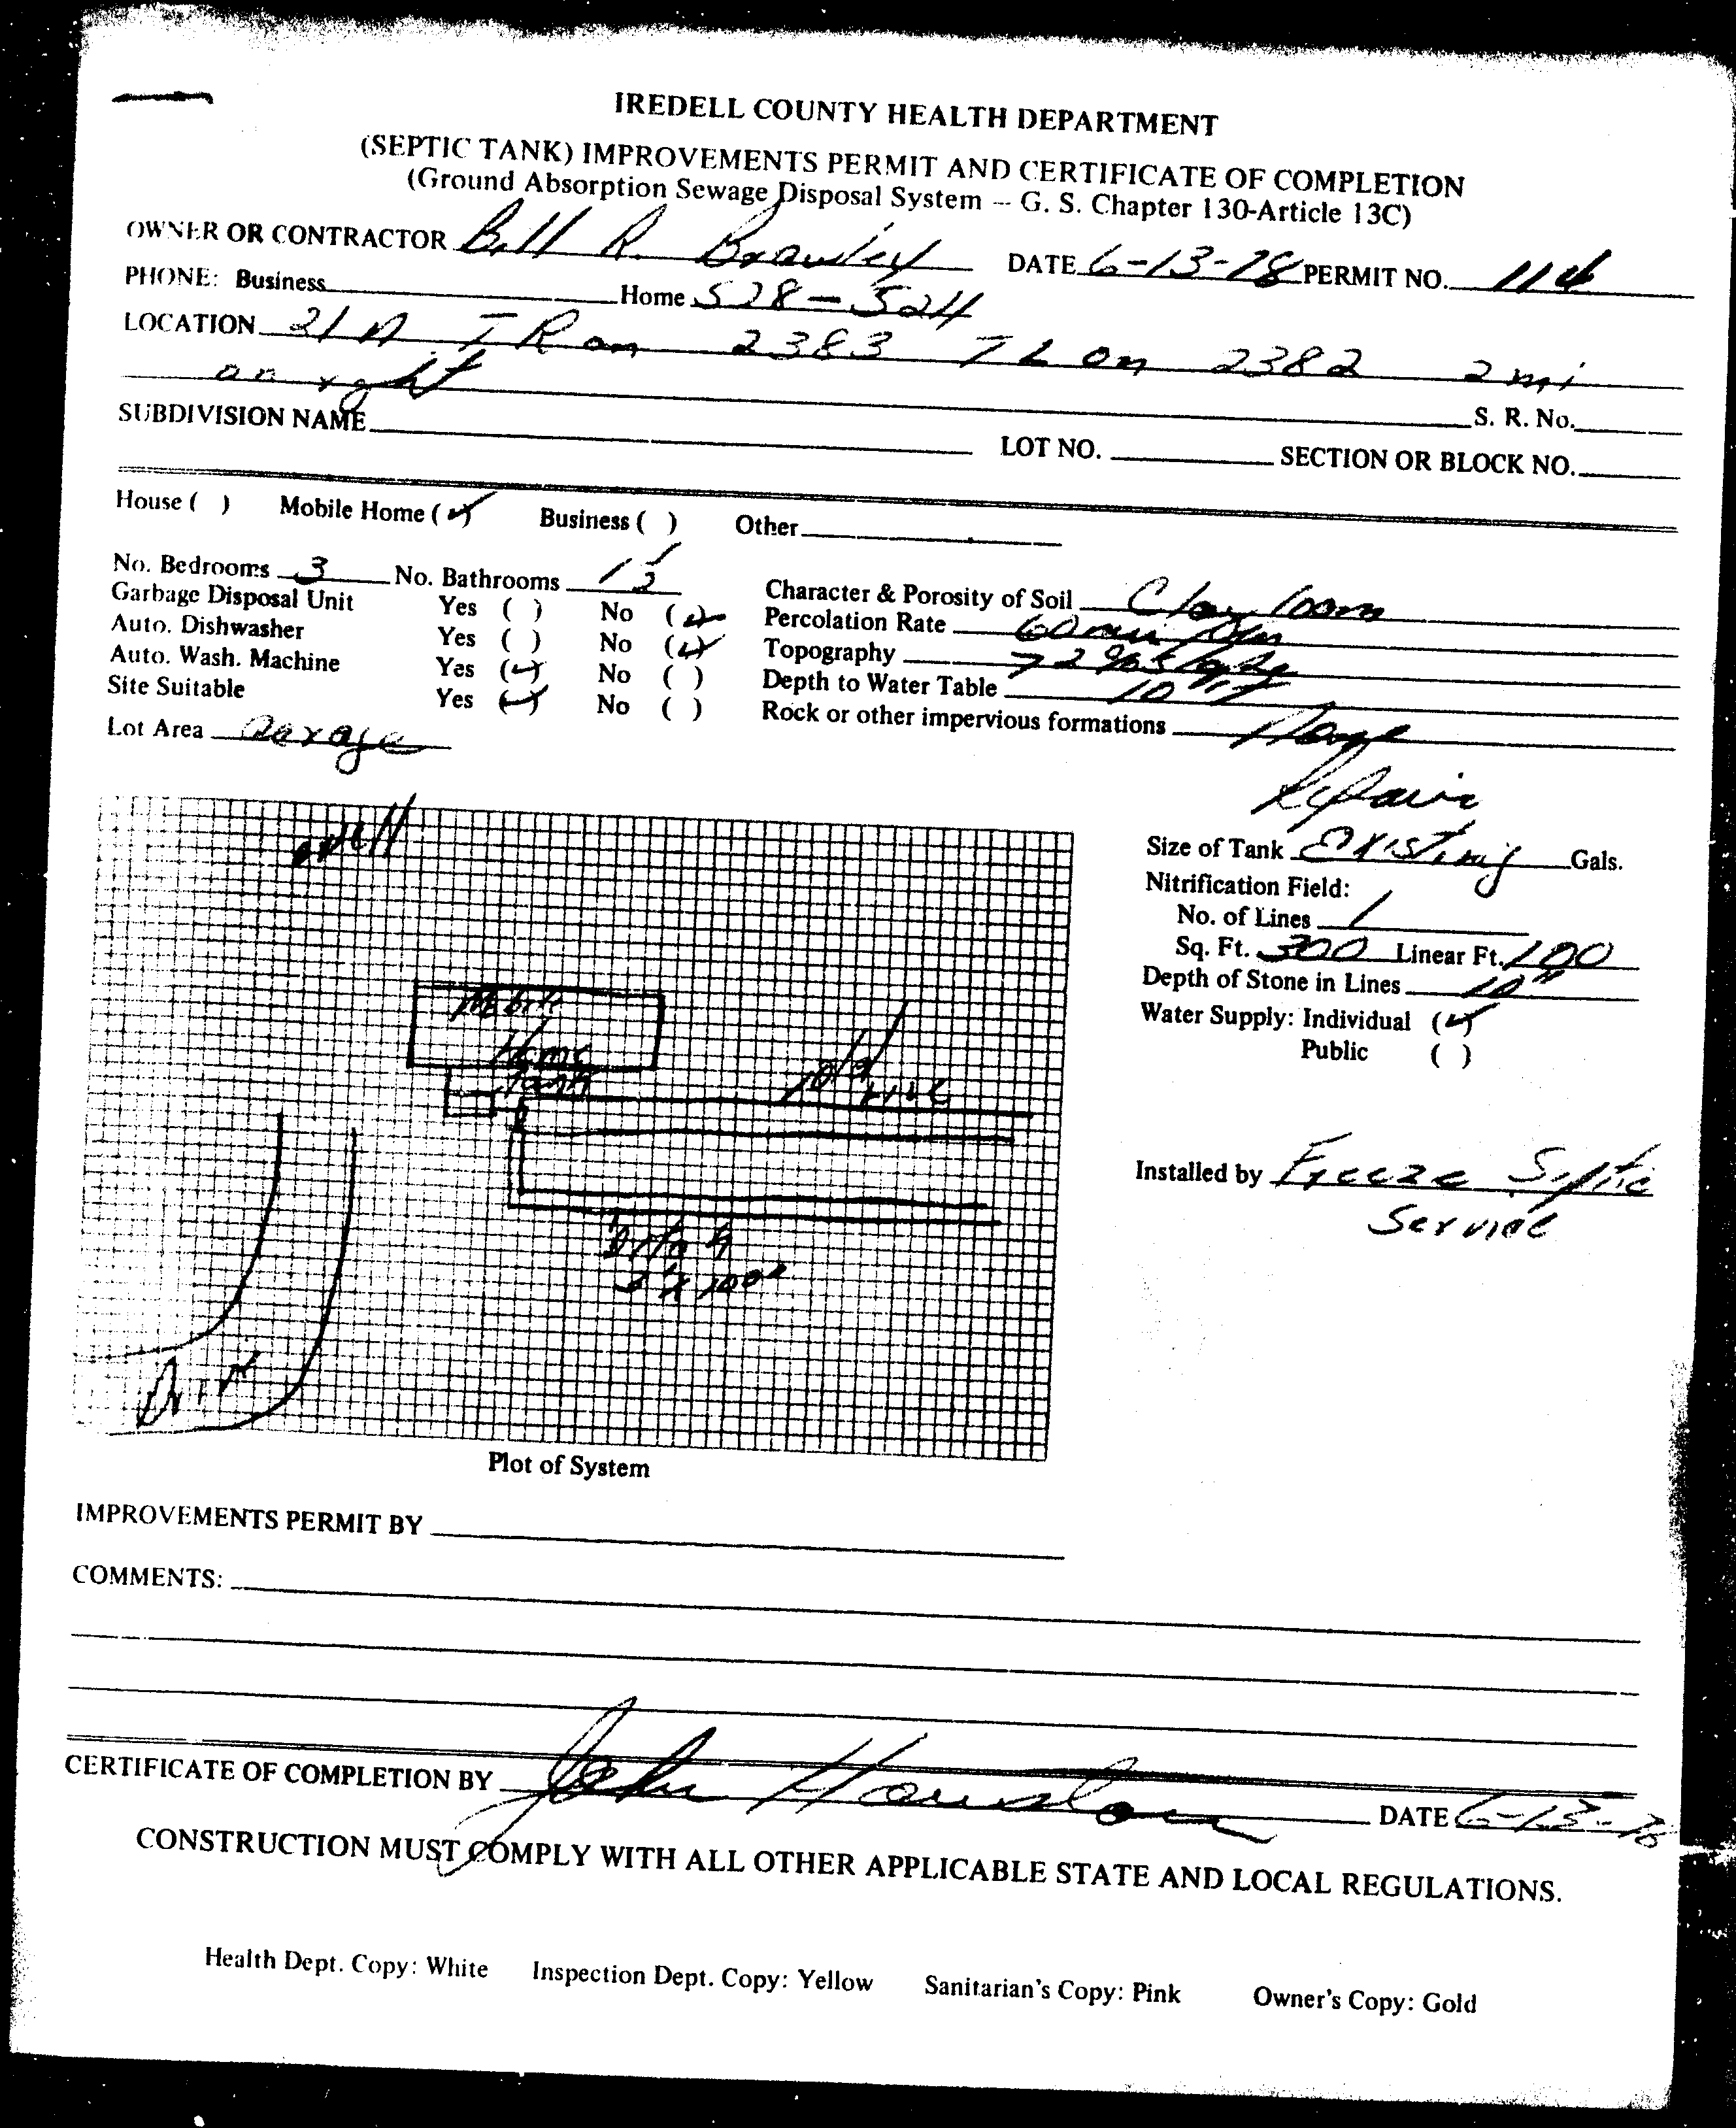 IREDELL COUNTY HEALTH DEPARTMENT
(SEPTIC TANK) IMPROVEMENTS PERMIT AND CERTIFICATE OF COMPLETION
(Ground Absorption Sewage Disposal System -- G. S. Chapter 130-Article 13C)
OWNER OR CONTRACTOR Bill R. Brawley DATE 6-13-78 PERMIT NO. 
PHONE: Business Home 528-524
LOCATION 21 N TR on 2383 TL on 2382 2 mi
on right S. R. No.
SUBDIVISION NAME LOT NO. SECTION OR BLOCK NO.
House ( ) Mobile Home (✓) Business ( ) Other
No. Bedrooms 3 No. Bathrooms 1 1/2 Character & Porosity of Soil Clay loam
Garbage Disposal Unit Yes ( ) No (✓) Percolation Rate 60 min
Auto. Dishwasher Yes ( ) No (✓) Topography > 2% slope
Auto. Wash. Machine Yes (✓) No ( ) Depth to Water Table 10
Site Suitable Yes (✓) No ( ) Rock or other impervious formations None
Lot Area
Repair
well
Size of Tank Existing Gals.
Nitrification Field:
No. of Lines 1
Sq. Ft. 300 Linear Ft. 100
Depth of Stone in Lines 10"
Water Supply: Individual (✓)
Public ( )
Mobile
Home
Tank
old line
Installed by Freeze Septic
Service
3' x 100'
Drive
Plot of System
IMPROVEMENTS PERMIT BY
COMMENTS:
CERTIFICATE OF COMPLETION BY John DATE 6-13-78
CONSTRUCTION MUST COMPLY WITH ALL OTHER APPLICABLE STATE AND LOCAL REGULATIONS.
Health Dept. Copy: White Inspection Dept. Copy: Yellow Sanitarian's Copy: Pink Owner's Copy: Gold